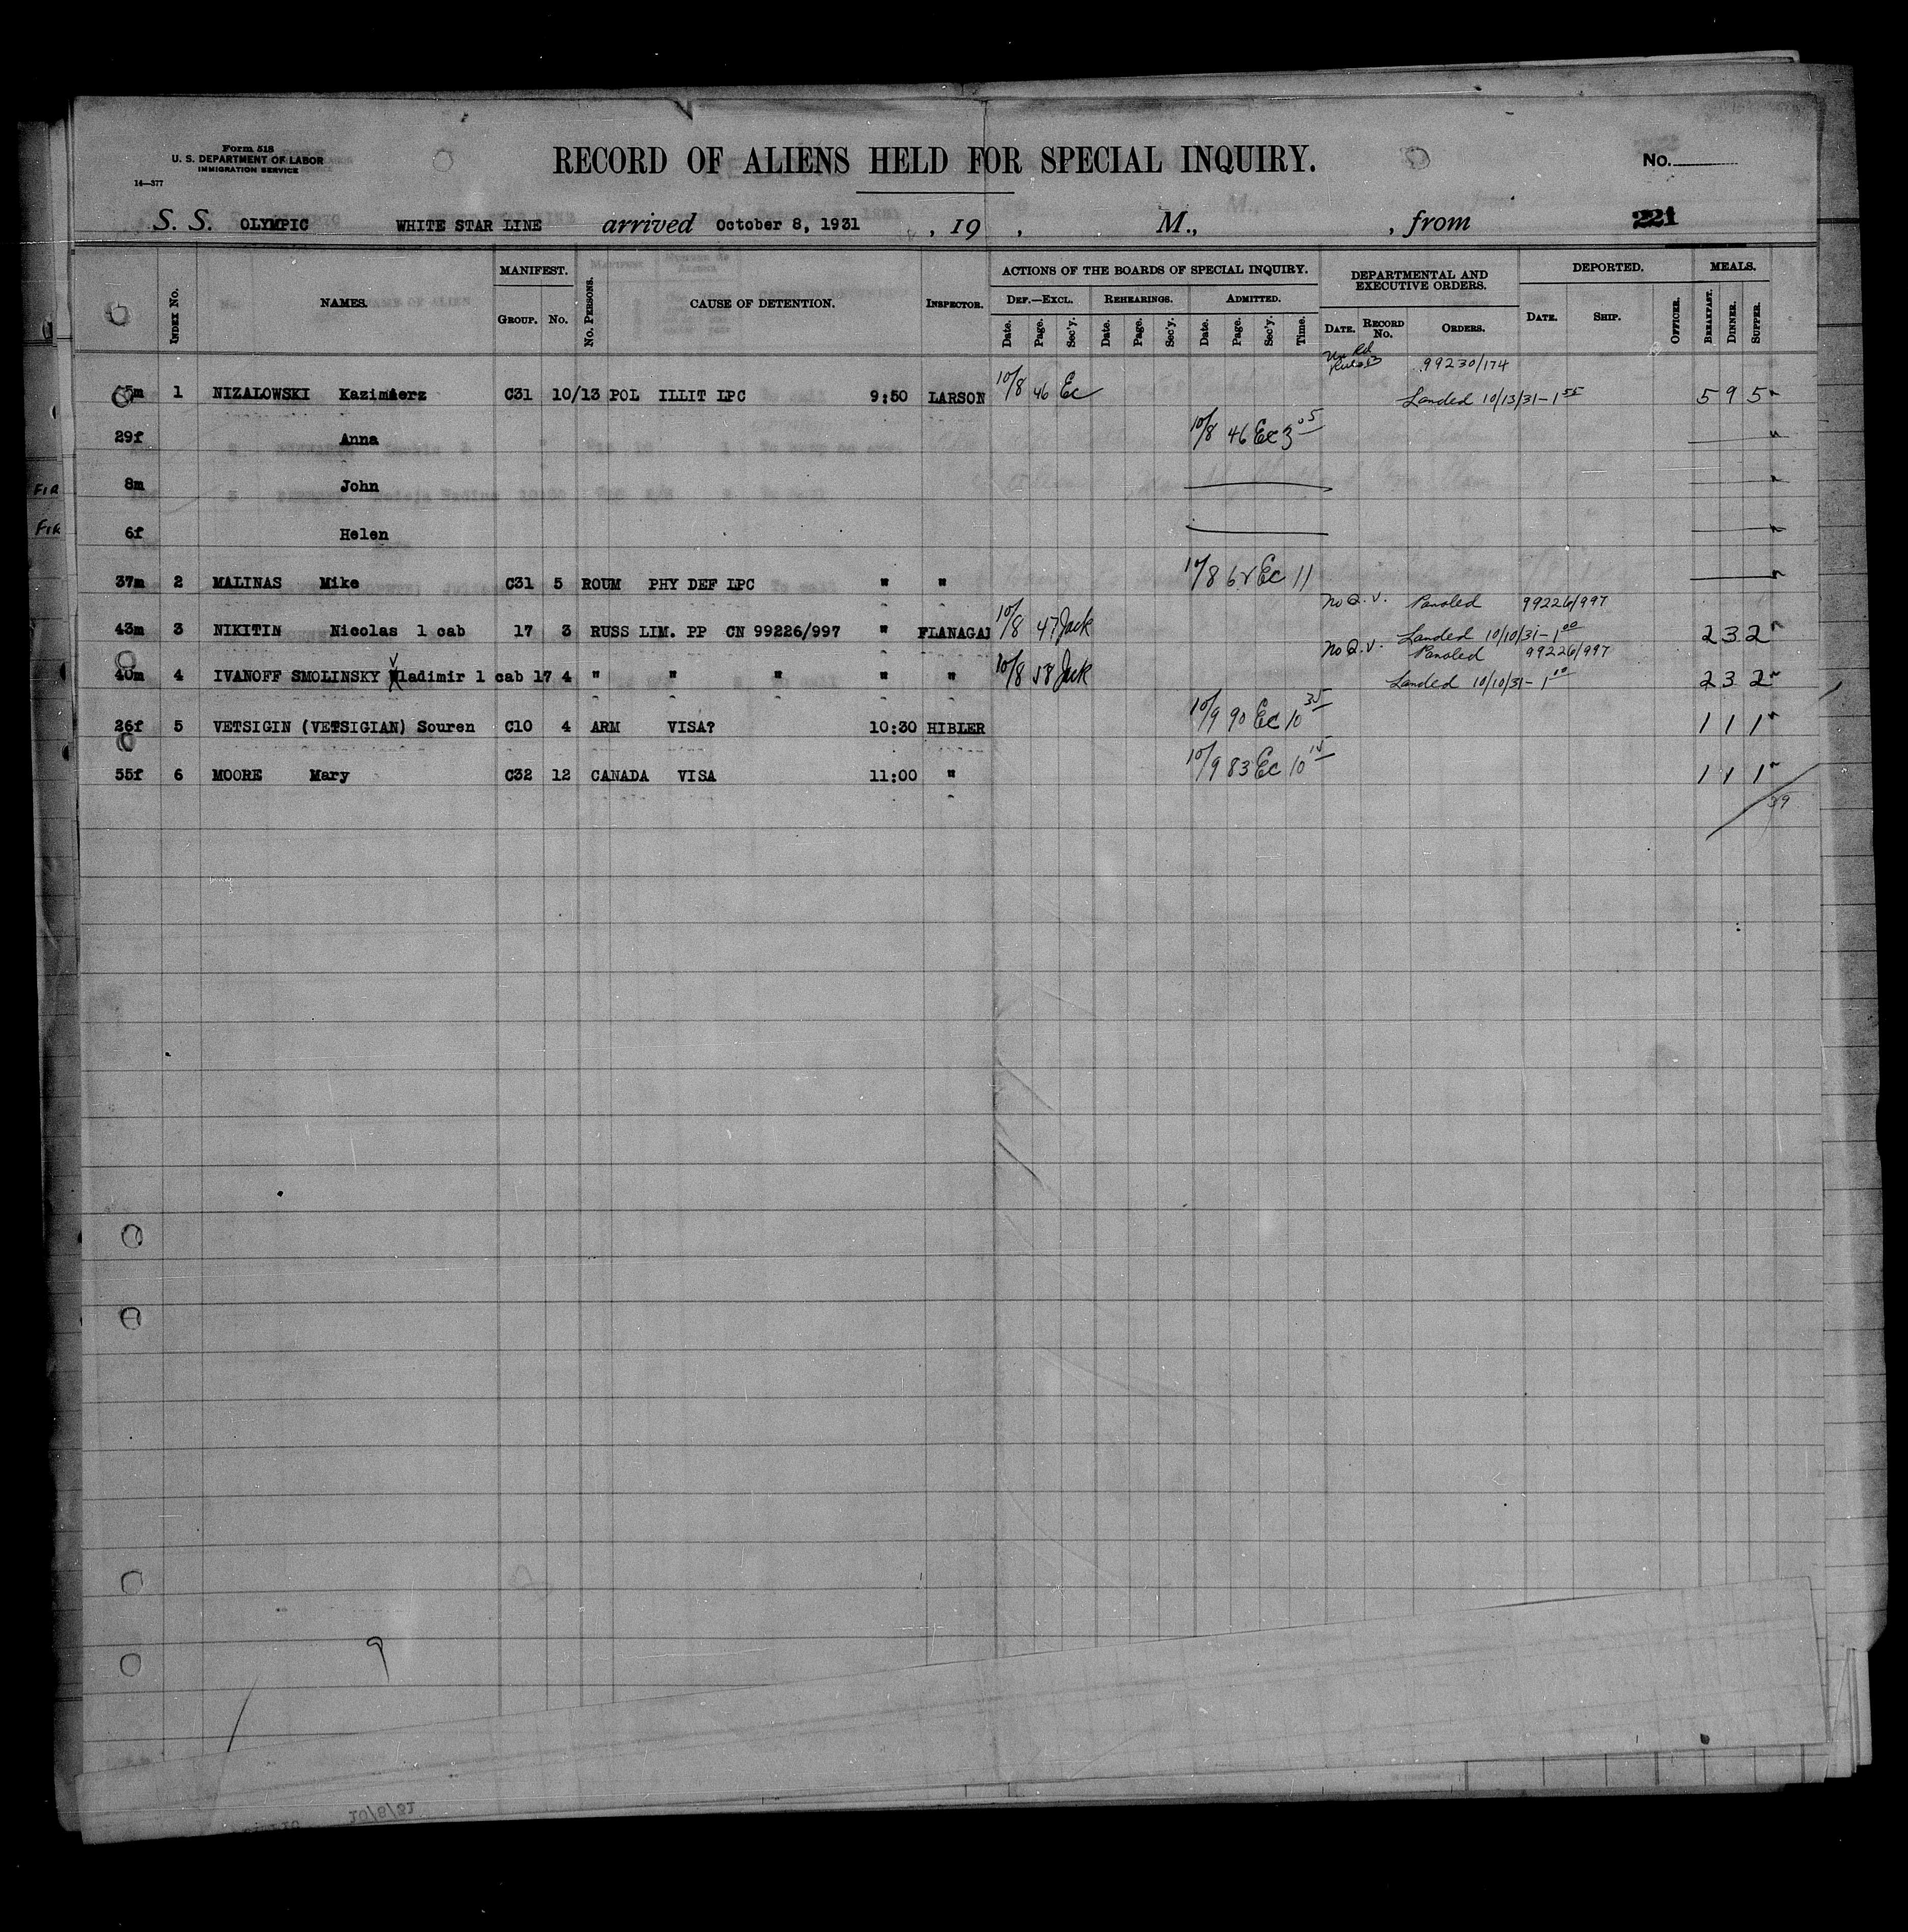 Form 518
U. S. DEPARTMENT OF LABOR
IMMIGRATION SERVICE
14—377
RECORD OF ALIENS HELD FOR SPECIAL INQUIRY.
No.
S. S. OLYMPIC WHITE STAR LINE arrived October 8, 1931 , 19 , M., , from 221
INDEX No. NAMES. MANIFEST. GROUP. No. No. PERSONS. CAUSE OF DETENTION. INSPECTOR. ACTIONS OF THE BOARDS OF SPECIAL INQUIRY. DEF.—EXCL. REHEARINGS. ADMITTED. DEPARTMENTAL AND EXECUTIVE ORDERS. DEPORTED. MEALS.
Date. Page. Sec'y. Date. Page. Sec'y. Date. Page. Sec'y. Time. DATE. RECORD No. ORDERS. DATE. SHIP. OFFICER. BREAKFAST. DINNER. SUPPER.
99230/174
5m 1 NIZALOWSKI Kazimierz C31 10/13 POL ILLIT LPC 9:50 LARSON 10/8 46 Ec Landed 10/13/31-1 55 5 9 5
29f Anna 10/8 46 Ec 3 05 "
F1R 8m John
F1R 6f Helen
37m 2 MALINAS Mike C31 5 ROUM PHY DEF LPC " " 10/8 62 Ec 11
No Q.V. Paroled 99226/997
43m 3 NIKITIN Nicolas 1 cab 17 3 RUSS LIM. PP CN 99226/997 " FLANAGAN 10/8 47 Jack Landed 10/10/31-1 00 2 3 2
No Q.V. Paroled 99226/997
40m 4 IVANOFF SMOLINSKY Vladimir 1 cab 17 4 " " " " " 10/8 58 Jack Landed 10/10/31-1 00 2 3 2
26f 5 VETSIGIN (VETSIGIAN) Souren C10 4 ARM VISA? 10:30 HIBLER 10/9 90 Ec 10 35 1 1 1
55f 6 MOORE Mary C32 12 CANADA VISA 11:00 " 10/9 83 Ec 10 15 1 1 1
39
9
10/8/31